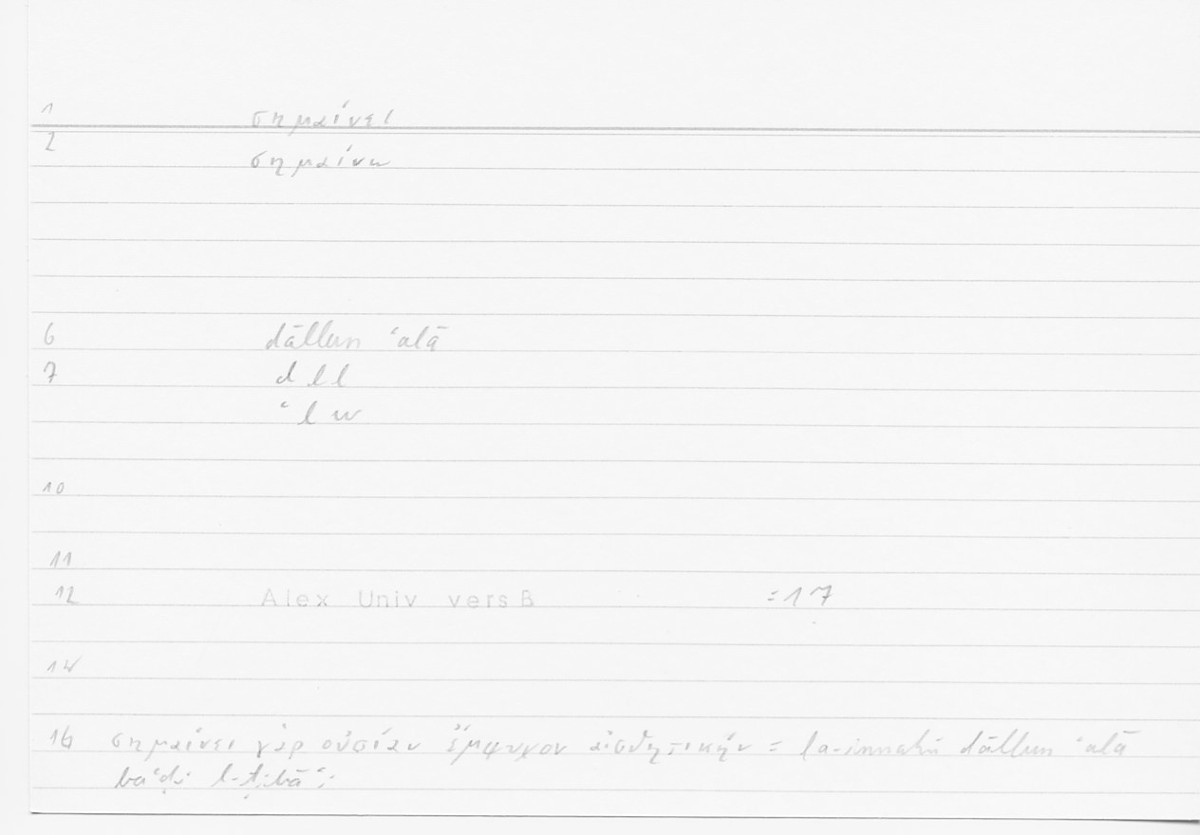 1 σημαίνει
2 σημαίνω
6 dāllun ʿalā
7 d l l
ʿ l w
10
11
12 Alex Univ vers B =17
14
16 σημαίνει γὰρ οὐσίαν ἔμψυχον αἰσθητικήν = la-innahū dāllun ʿalā
baʿḍi l-ṭibāʿi